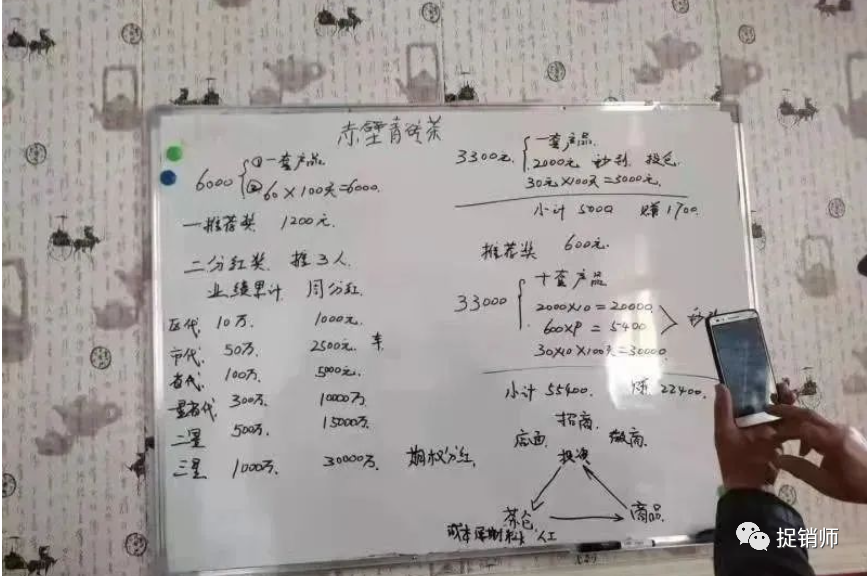 赤壁青砖茶
6000
①一套产品
②60×100天=6000.
一推荐奖 1200元.
二分红奖 推3人.
业绩累计 周分红.
区代 10万. 1000元.
市代. 50万. 2500元. 车.
省代. 100万. 5000元.
一星省代. 300万. 10000万
二星 500万. 15000万.
三星 1000万. 30000万. 期权分红.
3300元
一套产品.
2000元 秒到 提仓.
30元×100天=3000元.
小计 5000 赚1700.
推荐奖 600元.
33000
十套产品
2000×10=20000.
600×9=5400
30×10×100天=30000.
小计 55400. 赚 22400.
招商.
店面 微商.
投资
茶仓 商品.
成本 人工
捉销师